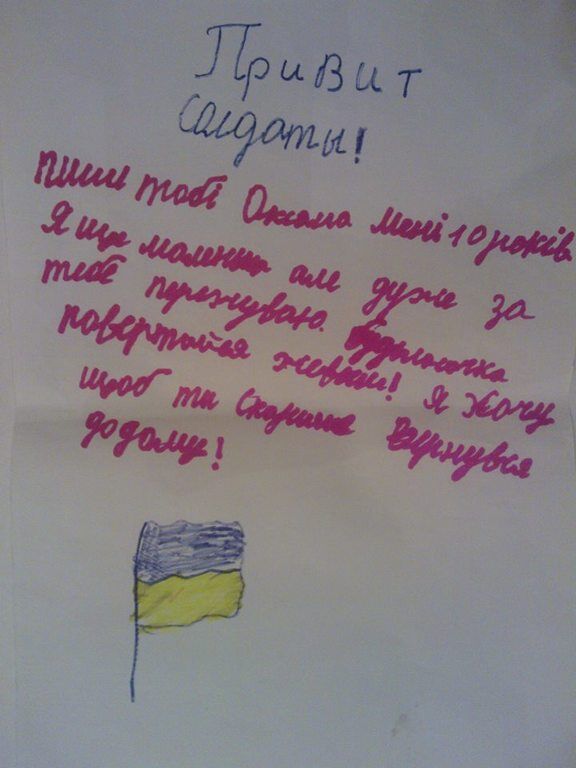 Привит
Солдаты!
Пишу тобі Оксана мені 10 років
Я ще маленька але дуже за
тебе переживаю. Будьласочка
повертайся живый! Я Хочу
щоб ти скорише Вернувся
додому!